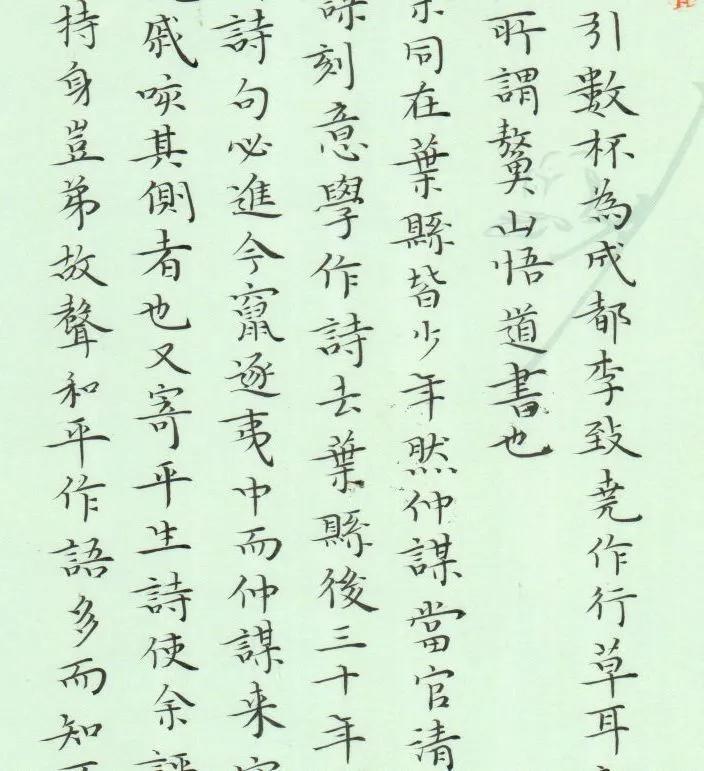 引數杯為成都李致堯作行草耳
所謂鰲山悟道書也
同在葉縣皆少年然仲謀當官清
刻意學作詩去葉縣後三十年
詩句必進今竄逐夷中而仲謀来
戚嘆其側者也又寄平生詩使余評
持身豈弟故聲和平作語多而知